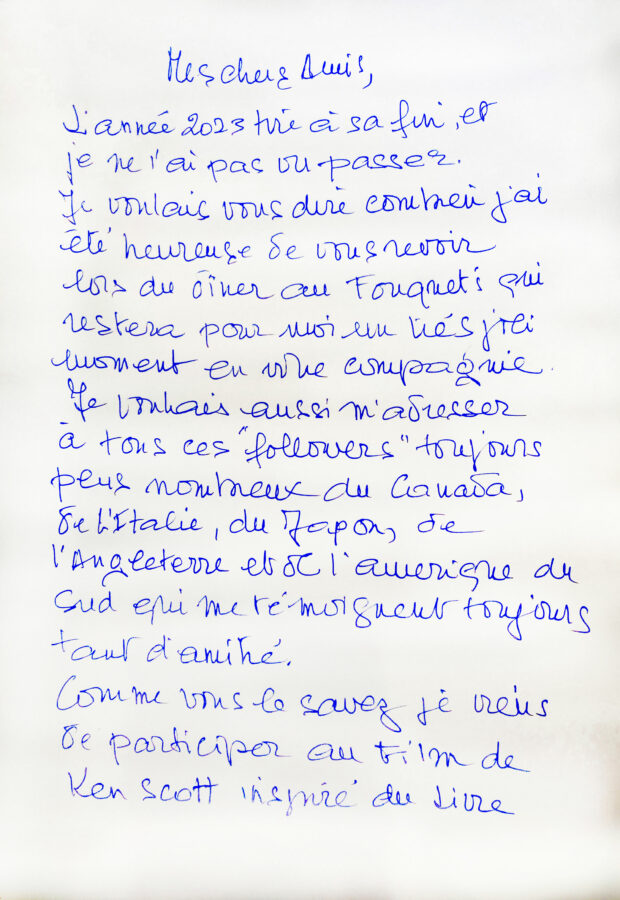 Mes chers Amis,
L'année 2023 tire à sa fin, et
je ne l'ai pas vu passer.
Je voulais vous dire combien j'ai
été heureuse de vous revoir
lors du dîner au Fouquet's qui
restera pour moi un très joli
moment en votre compagnie.
Je voulais aussi m'adresser
à tous ces "followers" toujours
plus nombreux du Canada,
de l'Italie, du Japon, de
l'Angleterre et de l'amerique du
Sud qui me témoignent toujours
tant d'amitié.
Comme vous le savez je viens
de participer au Film de
Ken Scott inspiré du Livre